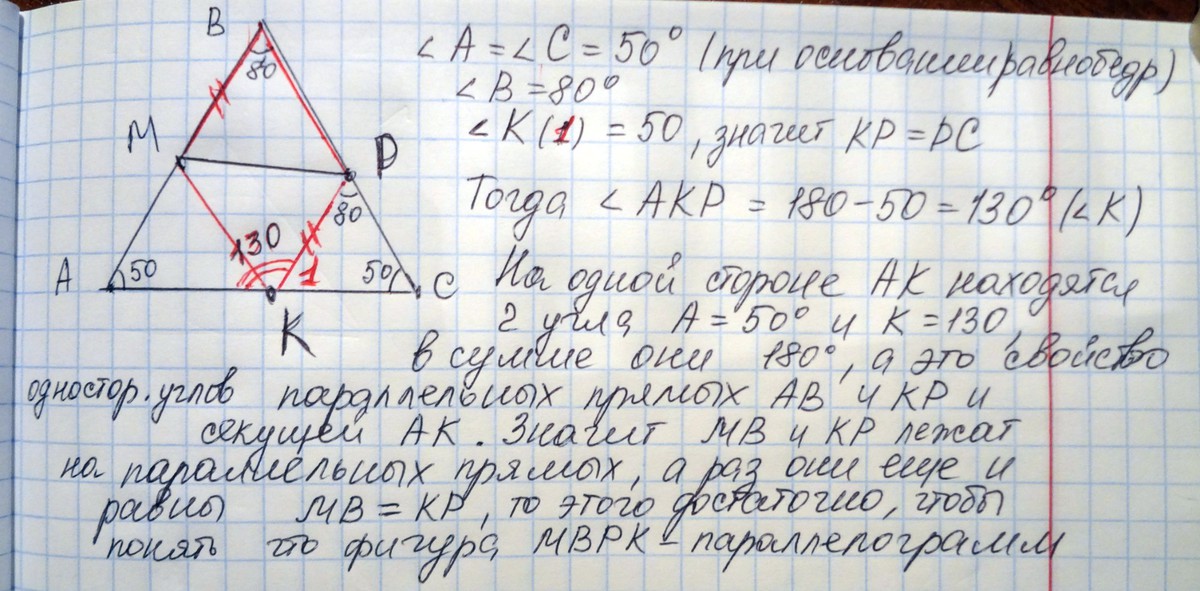 B
80
M
P
80
130
A
50
1
50
C
K
∠A = ∠C = 50° (при основании равнобедр)
∠B = 80°
∠K (1) = 50, значит KP = PC
Тогда ∠AKP = 180 - 50 = 130° (∠K)
На одной стороне AK находятся
2 угла A = 50° и K = 130,
в сумме они 180°, а это свойство
одностор. углов параллельных прямых AB и KP и
секущей AK. Значит MB и KP лежат
на параллельных прямых, а раз они еще и
равны MB = KP, то этого достаточно, чтобы
понять что фигура MBPK - параллелограмм